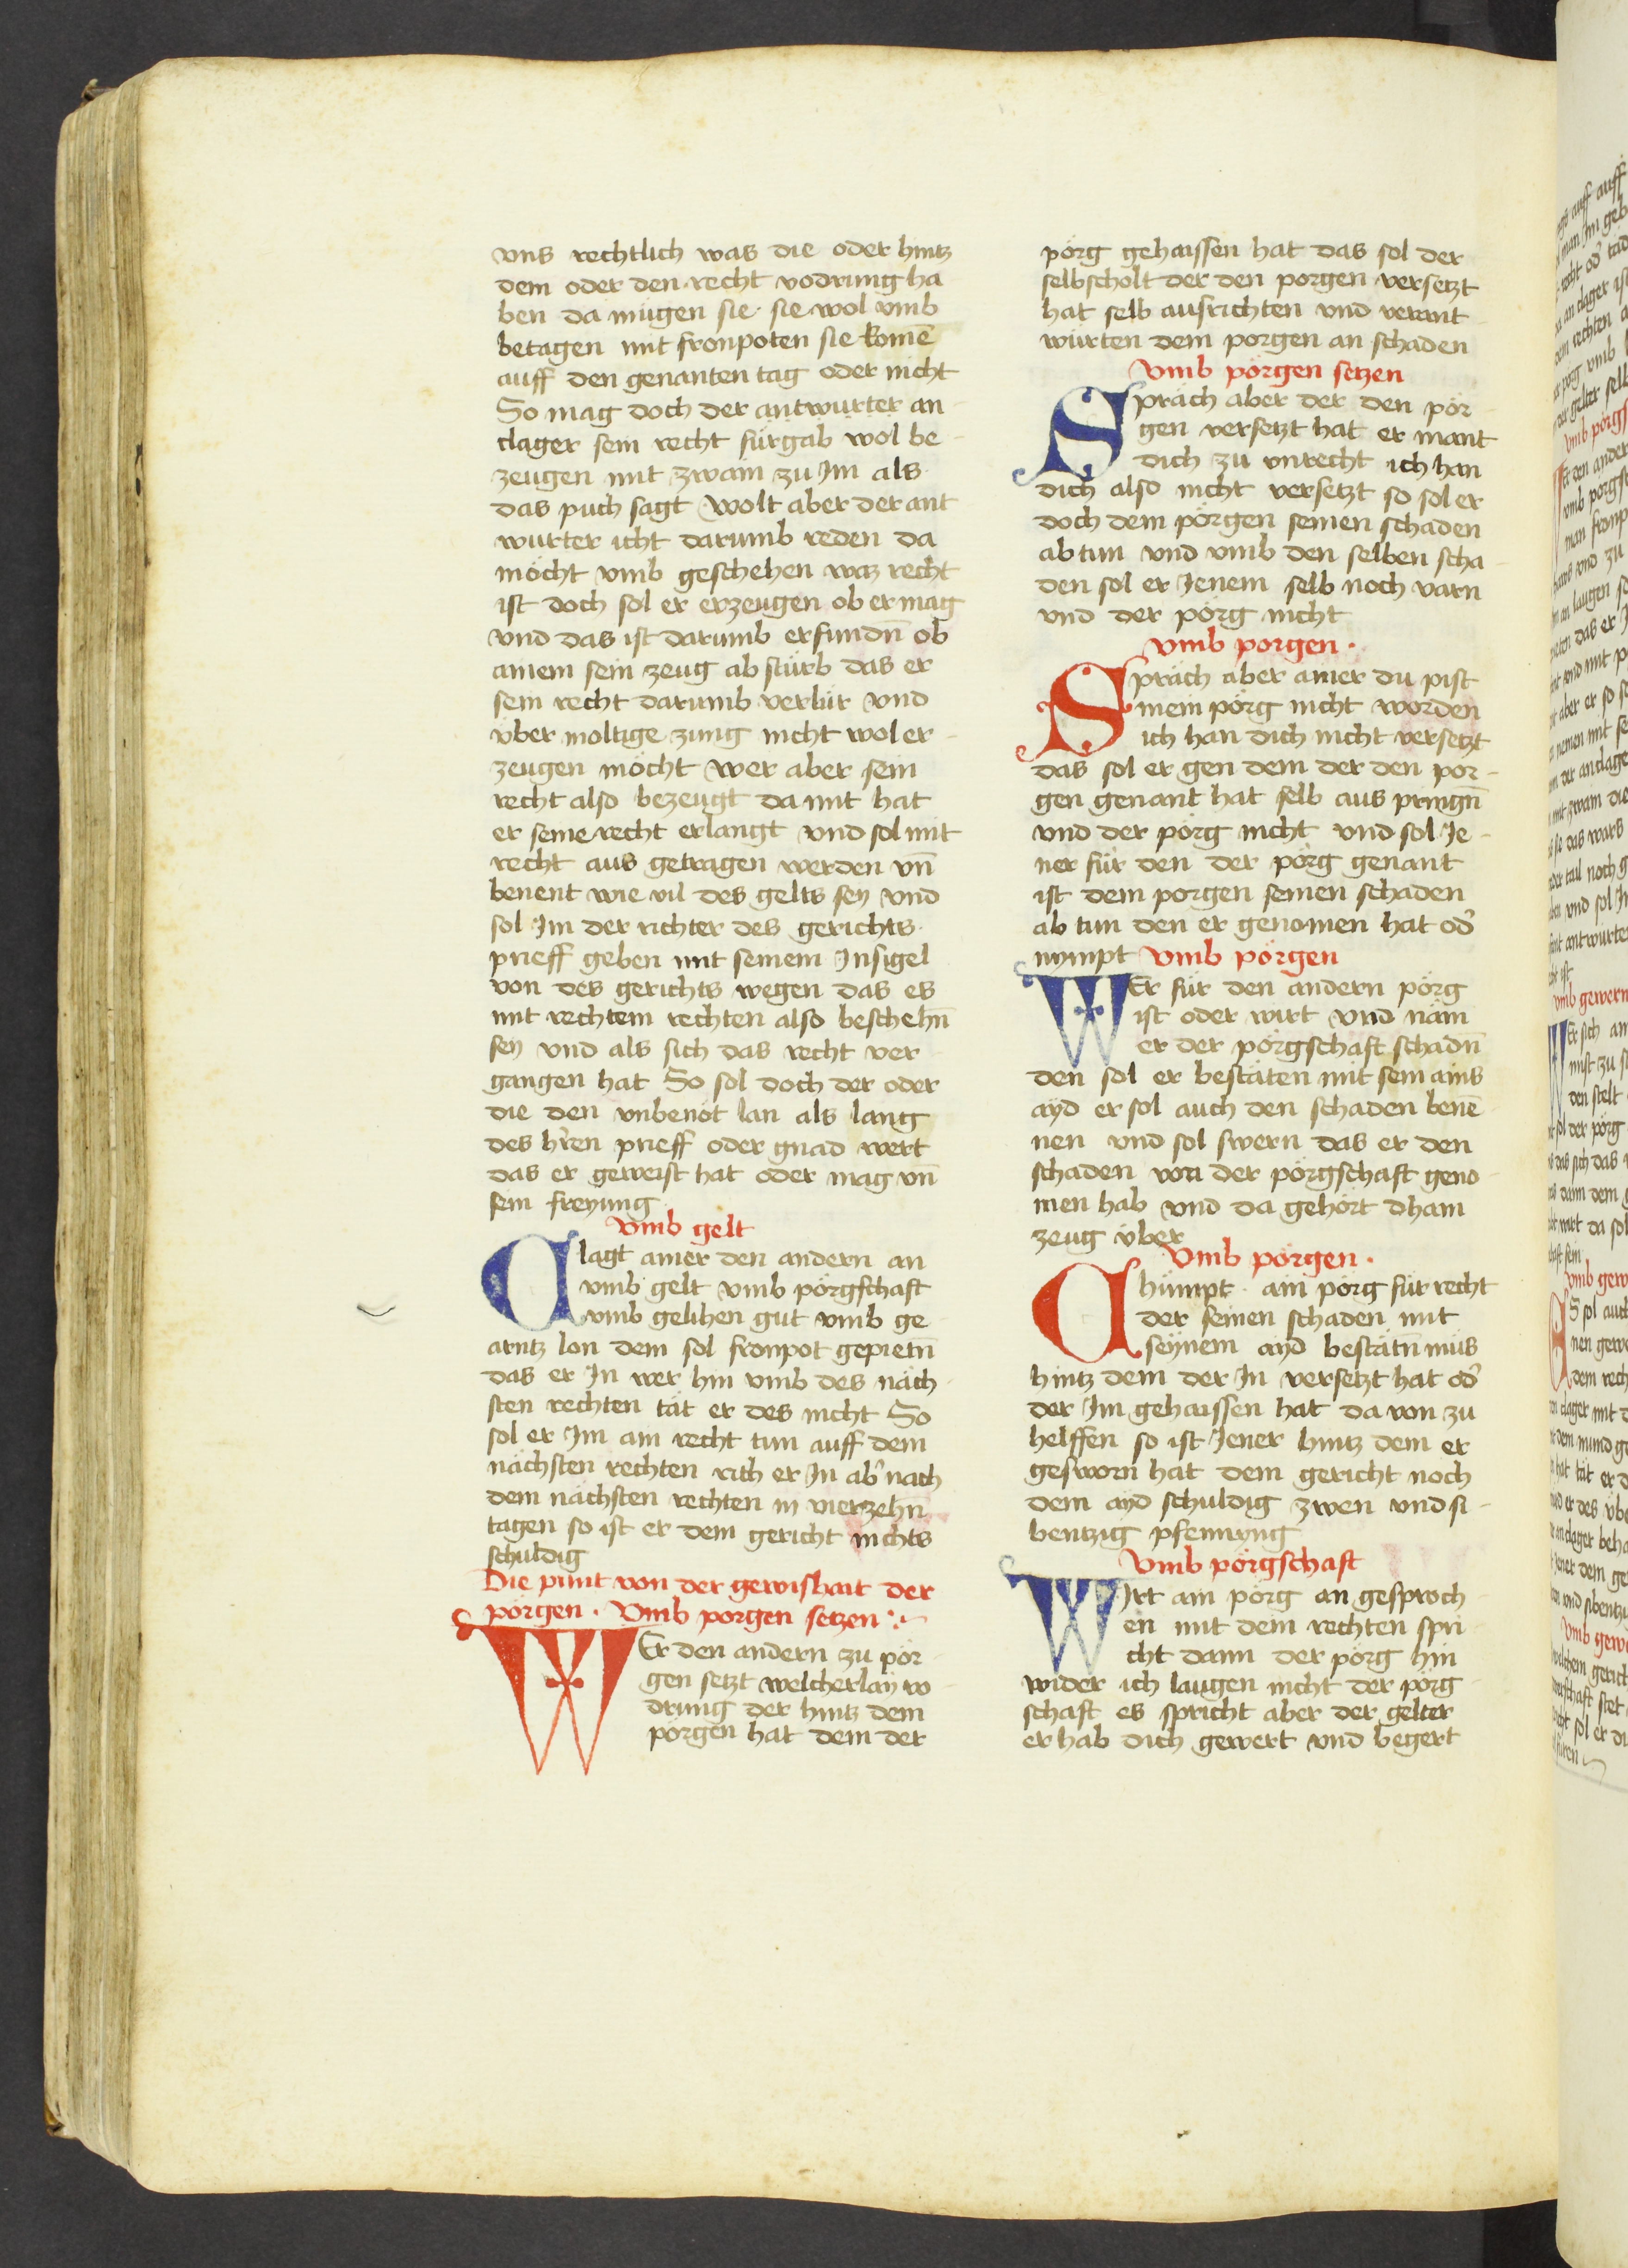 vns rechtlich was die oder hintz
dem oder den recht vodrung ha
ben da mügen sie sie wol vmb
betagen mit fronpoten sie komē
auff den genanten tag oder nicht
So mag doch der antwurter an
clager sein recht fürgab wol be
zeugen mit zwain zu Im als
das puch sagt wolt aber der ant
wurter icht darumb reden da
möcht vmb geschehen waz recht
ist doch sol er erzeugen ob er mag
vnd das ist darumb erfundn̄ ob
ainem sein zeug ab stürb das er
sein recht darumb verlür vnd
über moltige zung nicht wol er
zeugen möcht wer aber sein
recht also bezeugt da mit hat
er seine recht erlangt vnd sol mit
recht aus getragen werden vn̄
benent wie vil des gelts sey vnd
sol Im der richter des gerichts
prieff geben mit seinem Insigel
von des gerichts wegen das es
mit rechtem rechten also beschehn̄
sey vnd als sich das recht ver
gangen hat So sol doch der oder
die den vnbenöt lan als lang
des hren prieff oder gnad wert
das er geweist hat oder mag vn̄
sein freyung
Vmb gelt
Clagt ainer den andern an
vmb gelt vmb pörgschaft
vmb gelihen gut vmb ge
arntz lon dem sol fronpot gepietn̄
das er In wer hin vmb des näch
sten rechten tät er des nicht So
sol er Im ain recht tun auff dem
nächsten rechten rich er In ab' nach
dem nächsten rechten in vierzehn̄
tagen so ist er dem gericht nichts
schuldig
Die punt von der gewishait der
pörgen. Vmb porgen setzen
WEr den andern zu pör
gen setzt welcherlay vo
drung der hintz dem
pörgen hat dem der
pörg gehaissen hat das sol der
selbscholt der den porgen versetzt
hat selb ausrichten vnd verant
würten dem porgen an schaden
Vmb pörgen setzen
Spräch aber der den pör
gen versetzt hat er mant
dich zu vnrecht ich han
dich also nicht versetzt so sol er
doch dem pörgen seinen schaden
ab tun vnd vmb den selben scha
den sol er Jenem selb noch varn
vnd der pörg nicht
vmb porgen.
Spräch aber ainer du pist
mein pörg nicht worden
ich han dich nicht versetzt
das sol er gen dem der den por
gen genant hat selb aus pringn̄
vnd der pörg nicht vnd sol Je
ner für den der pörg genant
ist dem porgen seinen schaden
ab tun den er genomen hat od'
nympt Vmb pörgen
WEr für den andern pörg
ist oder wirt vnd näm
er der pörgschaft schadn̄
den sol er bestäten mit sein ains
ayd er sol auch den schaden benē
nen vnd sol swern das er den
schaden von der pörgschaft geno
men hab vnd da gehört dhain
zeug über
Vmb pörgen.
Chümpt ain pörg für recht
der seinen schaden mit
seynem ayd bestätn̄ müs
hintz dem der In versetzt hat od'
der Im gehaissen hat da von zu
helffen so ist Jener hintz dem er
gesworn hat dem gericht noch
dem ayd schuldig zwen vnd si
bentzig pfennyng
Vmb pörgschaft
WIrt ain pörg an gesproch
en mit dem rechten spri
cht dann der pörg hin
wider ich laugen nicht der pörg
schaft es spricht aber der gelter
er hab dich gewert vnd begert